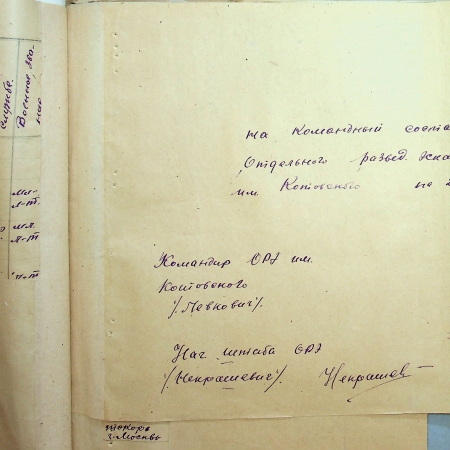 службе.
Военное зва-
ние
мл-
л-т
мл
л-т
л-т
на командный соста
Отдельного развед. эска
им Котовского на 2
Командир ОРЭ им.
Котовского
/Левкович/.
Нач штаба ОРЭ
/Некрашевич/. Некрашев
токарь
г. Москвы